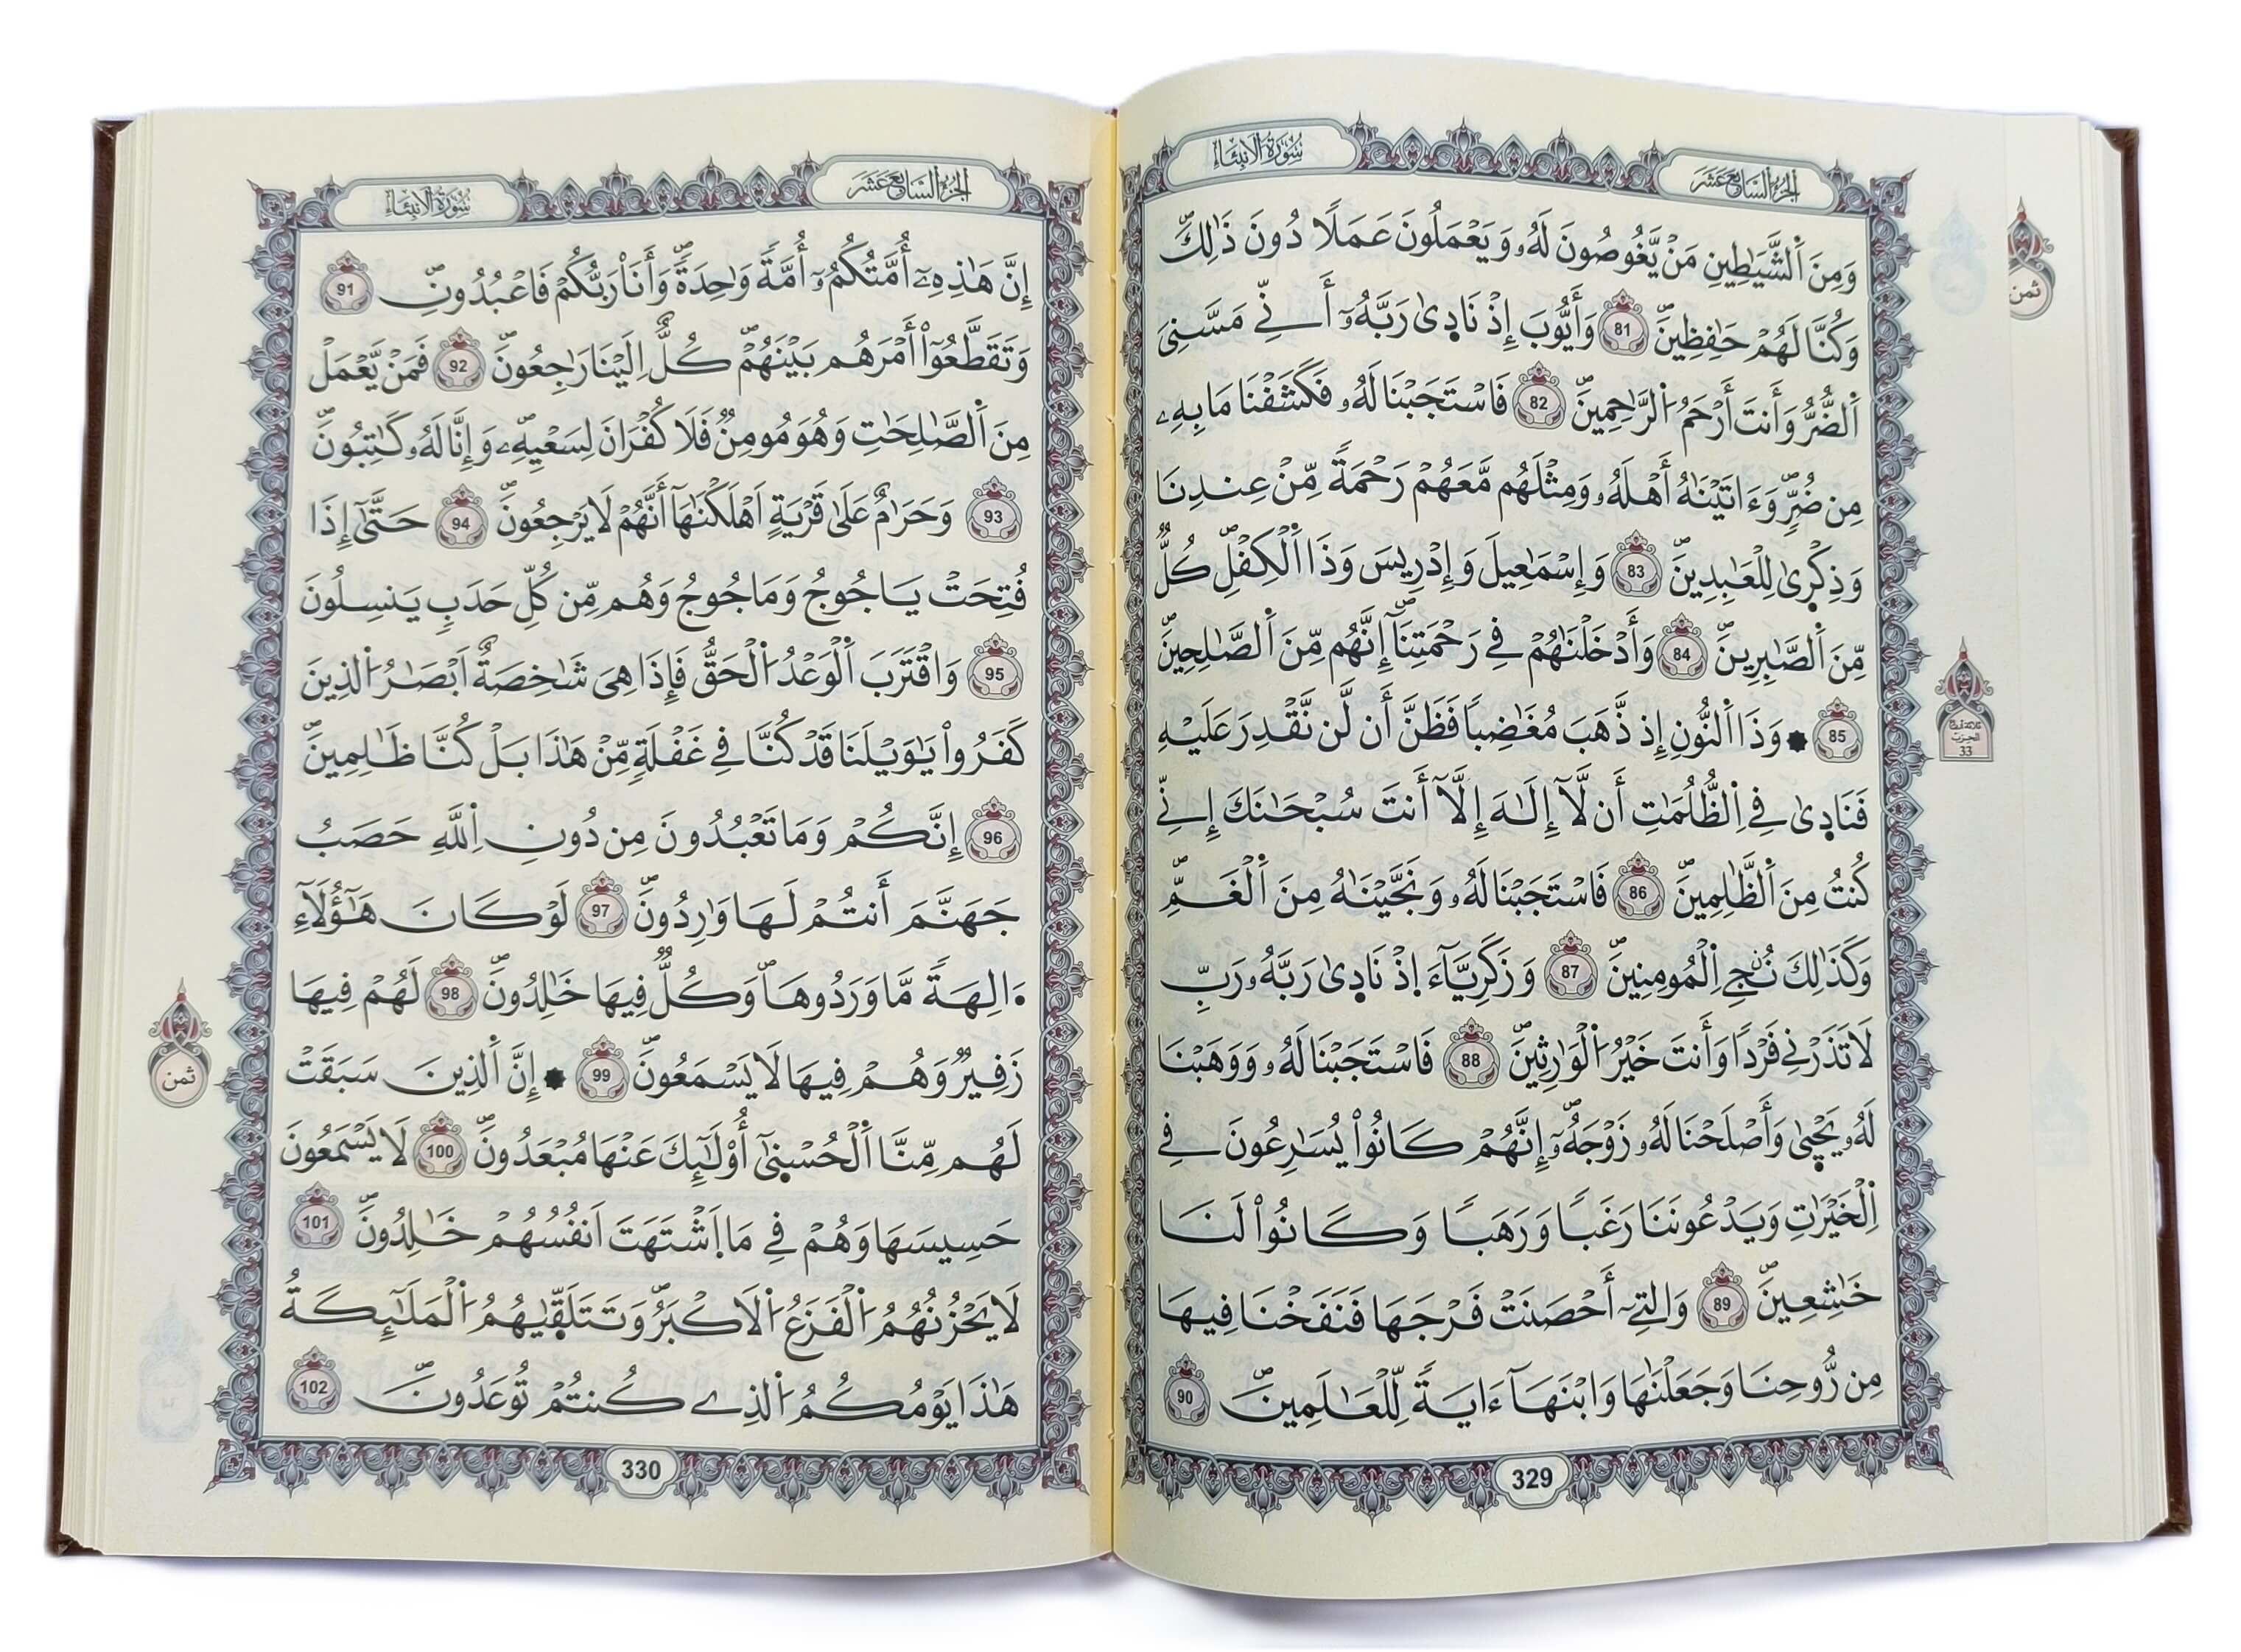 الجزء السابع عشر
سورة الأنبياء
وَمِنَ اَ۬لشَّيَٰطِينِ مَنْ يَّغُوصُونَ لَهُۥ وَيَعْمَلُونَ عَمَلاٗ دُونَ ذَٰلِكَۖ
ثمن
وَكُنَّا لَهُمْ حَٰفِظِينَۖ 81 وَأَيُّوبَ إِذْ نَادٜىٰ رَبَّهُۥٓ أَنِّے مَسَّنِيَ
اَ۬لضُّرُّ وَأَنتَ أَرْحَمُ اُ۬لرَّٰحِمِينَۖ 82 فَاسْتَجَبْنَا لَهُۥ فَكَشَفْنَا مَا بِهِۦ
مِن ضُرّٖ وَءَاتَيْنَٰهُ أَهْلَهُۥ وَمِثْلَهُم مَّعَهُمْ رَحْمَةٗ مِّنْ عِندِنَا
وَذِكْر۪ىٰ لِلْعَٰبِدِينَۖ 83 وَإِسْمَٰعِيلَ وَإِدْرِيسَ وَذَا اَ۬لْكِفْلِۖ كُلّٞ
مِّنَ اَ۬لصَّٰبِرِينَۖ 84 وَأَدْخَلْنَٰهُمْ فِے رَحْمَتِنَآۖ إِنَّهُم مِّنَ اَ۬لصَّٰلِحِينَۖ
85 وَذَا اَ۬لنُّونِ إِذ ذَّهَبَ مُغَٰضِباٗ فَظَنَّ أَن لَّن نَّقْدِرَ عَلَيْهِ
ثلاثة أرباع
الحزب
33
فَنَادٜىٰ فِے اِ۬لظُّلُمَٰتِ أَن لَّآ إِلَٰهَ إِلَّآ أَنتَ سُبْحَٰنَكَ إِنِّے
كُنتُ مِنَ اَ۬لظَّٰلِمِينَۖ 86 فَاسْتَجَبْنَا لَهُۥ وَنَجَّيْنَٰهُ مِنَ اَ۬لْغَمِّۖ
وَكَذَٰلِكَ نُۨجِے اِ۬لْمُومِنِينَۖ 87 وَزَكَرِيَّآءَ اِ۪ذْ نَادٜىٰ رَبَّهُۥ رَبِّ
لَا تَذَرْنِے فَرْداٗ وَأَنتَ خَيْرُ اُ۬لْوَٰرِثِينَۖ 88 فَاسْتَجَبْنَا لَهُۥ وَوَهَبْنَا
لَهُۥ يَحْيٜىٰ وَأَصْلَحْنَا لَهُۥ زَوْجَهُۥٓۖ إِنَّهُمْ كَانُواْ يُسَٰرِعُونَ فِے
اِ۬لْخَيْرَٰتِ وَيَدْعُونَنَا رَغَباٗ وَرَهَباٗ وَكَانُواْ لَنَا
خَٰشِعِينَۖ 89 وَالتِےٓ أَحْصَنَتْ فَرْجَهَا فَنَفَخْنَا فِيهَا
مِن رُّوحِنَا وَجَعَلْنَٰهَا وَابْنَهَآ ءَايَةٗ لِّلْعَٰلَمِينَۖ 90
329
الجزء السابع عشر
سورة الأنبياء
إِنَّ هَٰذِهِۦٓ أُمَّتُكُمُۥٓ أُمَّةٗ وَٰحِدَةٗۖ وَأَنَا۠ رَبُّكُمْ فَاعْبُدُونِۖ 91
وَتَقَطَّعُوٓاْ أَمْرَهُم بَيْنَهُمْۖ كُلٌّ اِلَيْنَا رَٰجِعُونَۖ 92 فَمَنْ يَّعْمَلْ
مِنَ اَ۬لصَّٰلِحَٰتِ وَهُوَ مُومِنٞ فَلَا كُفْرَانَ لِسَعْيِهِۦۖ وَإِنَّا لَهُۥ كَٰتِبُونَۖ
93 وَحَرَٰمٌ عَلَىٰ قَرْيَةٍ اَهْلَكْنَٰهَآ أَنَّهُمْ لَا يَرْجِعُونَۖ 94 حَتَّىٰٓ إِذَا
فُتِحَتْ يَاجُوجُ وَمَاجُوجُ وَهُم مِّن كُلِّ حَدَبٖ يَنسِلُونَ
95 وَاقْتَرَبَ اَ۬لْوَعْدُ اُ۬لْحَقُّ فَإِذَا هِيَ شَٰخِصَةٌ اَبْصَٰرُ اُ۬لذِينَ
كَفَرُواْ يَٰوَيْلَنَا قَدْ كُنَّا فِے غَفْلَةٖ مِّنْ هَٰذَا بَلْ كُنَّا ظَٰلِمِينَۖ
96 إِنَّكُمْ وَمَا تَعْبُدُونَ مِن دُونِ اِ۬للَّهِ حَصَبُ
جَهَنَّمَ أَنتُمْ لَهَا وَٰرِدُونَۖ 97 لَوْ كَانَ هَٰٓؤُلَآءِ
ءَالِهَةٗ مَّا وَرَدُوهَاۖ وَكُلّٞ فِيهَا خَٰلِدُونَۖ 98 لَهُمْ فِيهَا
زَفِيرٞ وَهُمْ فِيهَا لَا يَسْمَعُونَۖ 99 إِنَّ اَ۬لذِينَ سَبَقَتْ
ثمن
لَهُم مِّنَّا اَ۬لْحُسْن۪ىٰٓ أُوْلَٰٓئِكَ عَنْهَا مُبْعَدُونَۖ 100 لَا يَسْمَعُونَ
حَسِيسَهَا وَهُمْ فِے مَا اَ۪شْتَهَتَ اَنفُسُهُمْ خَٰلِدُونَۖ 101
لَا يَحْزُنُهُمُ اُ۬لْفَزَعُ اُ۬لَاكْبَرُۖ وَتَتَلَقّٜىٰهُمُ اُ۬لْمَلَٰٓئِكَةُ
هَٰذَا يَوْمُكُمُ اُ۬لذِے كُنتُمْ تُوعَدُونَۖ 102
330